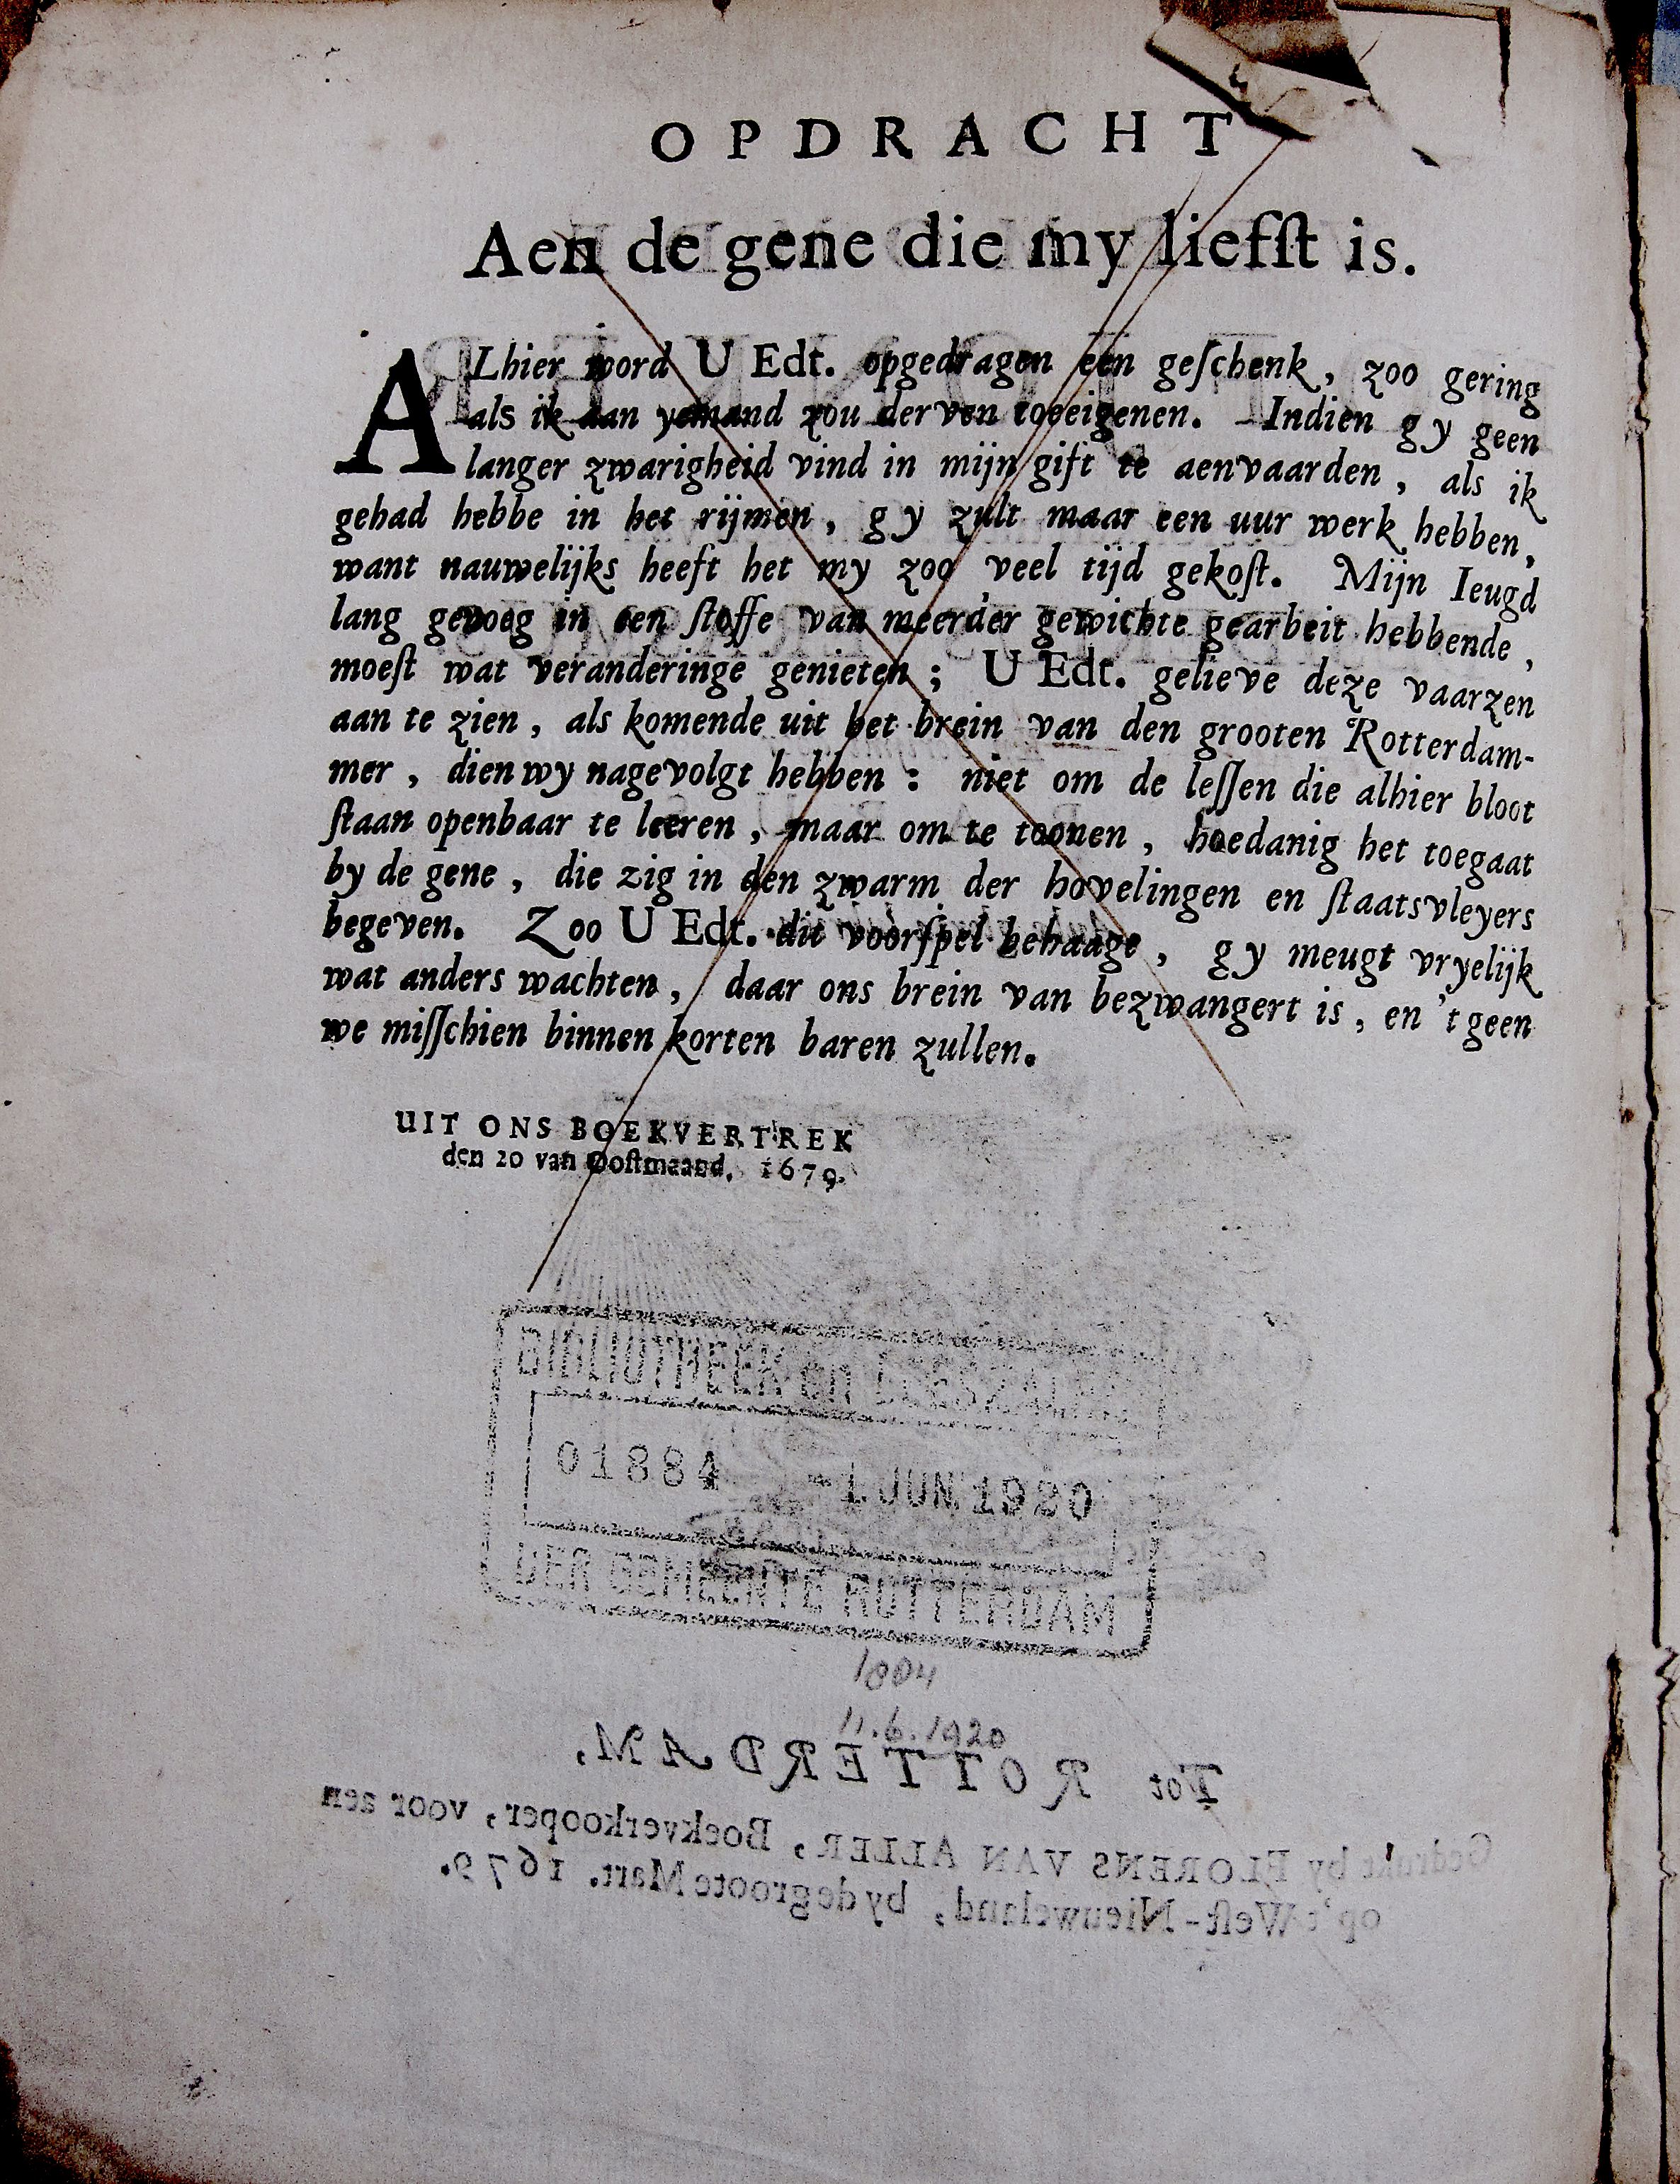 OPDRACHT
Aen de gene die my liefſt is.
ALhier word U Edt. opgedragen een geſchenk, zoo gering
als ik aan yemand zou derven toeeigenen. Indien gy geen
langer zwarigheid vind in mijn gift te aenvaarden, als ik
gehad hebbe in het rijmen, gy zult maar een uur werk hebben,
want nauwelijks heeft het my zoo veel tijd gekoſt. Mijn Ieugd
lang genoeg in een ſtoffe van meerder gewichte gearbeit hebbende,
moeſt wat veranderinge genieten; U Edt. gelieve deze vaarzen
aan te zien, als komende uit het brein van den grooten Rotterdam-
mer, dien wy nagevolgt hebben: niet om de leſſen die alhier bloot
ſtaan openbaar te leeren, maar om te toonen, hoedanig het toegaat
by de gene, die zig in den zwarm der hovelingen en ſtaatsvleyers
begeven. Zoo U Edt. dit voorſpel behaage, gy meugt vryelijk
wat anders wachten, daar ons brein van bezwangert is, en 't geen
we miſſchien binnen korten baren zullen.
UIT ONS BOEKVERTREK
den 20 van Ooſtmaand, 1679.
BIBLIOTHEEK en LEESZALEN
01884 -1 JUN 1920
DER GEMEENTE ROTTERDAM
1884
11.6.1920
Tot ROTTERDAM,
Gedrukt by FLORENS VAN ALLER, Boekverkooper, voor aen
op't Weſt-Nieuweland, by de groote Mart. 1679.